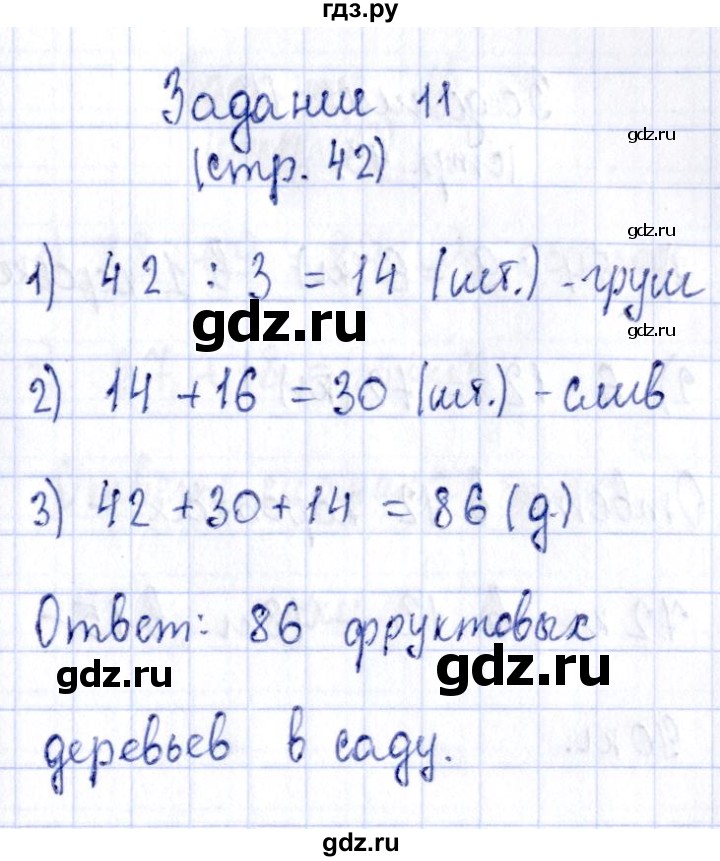 гдз.ру
Задание 11
gdz.ru
(стр. 42)
gdz.ru
1) 42 : 3 = 14 (шт.) - груш
gdz.ru
gdz.ru
2) 14 + 16 = 30 (шт.) - слив
3) 42 + 30 + 14 = 86 (д.)
Ответ: 86 фруктовых
gdz.ru
gdz.ru
деревьев в саду.
gdz.ru